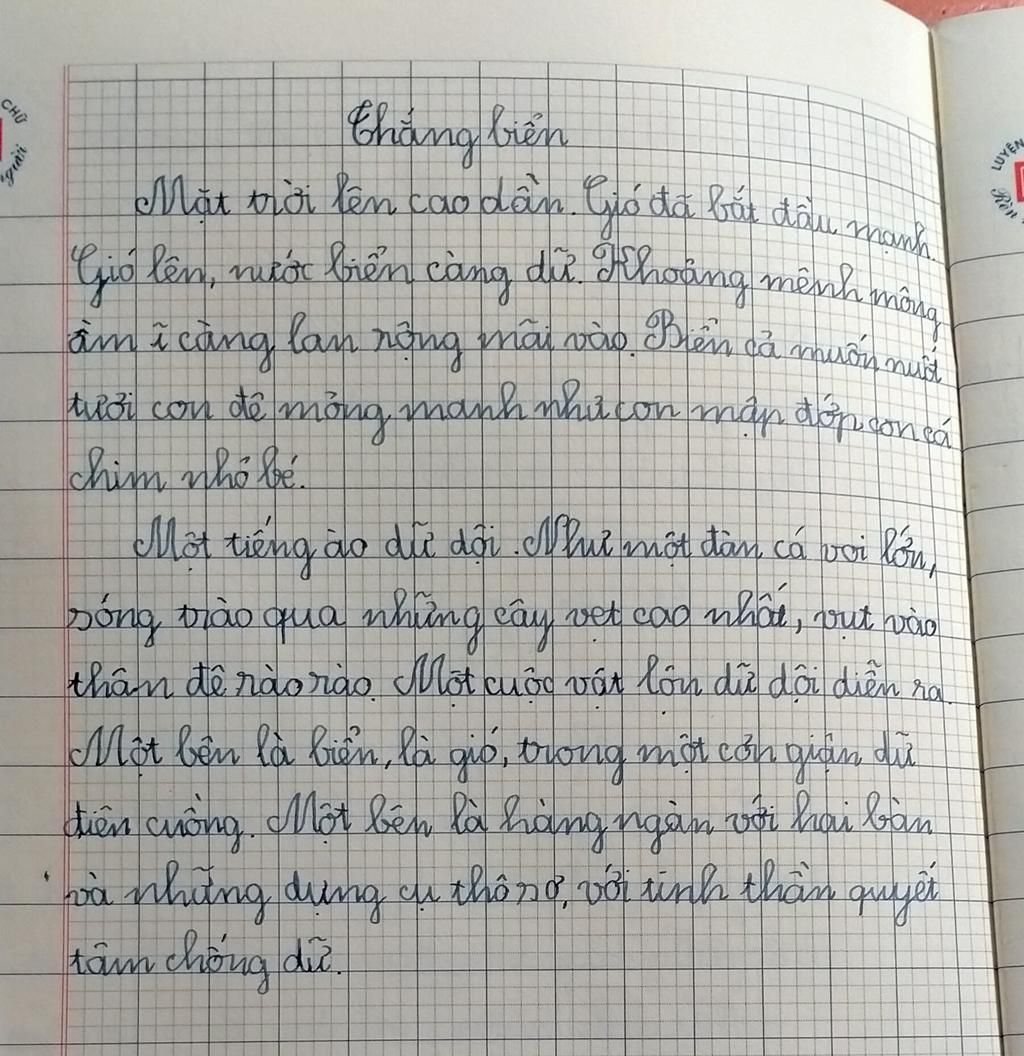 Thắng biển
Mặt trời lên cao dần. Gió đã bắt đầu mạnh.
Gió lên, nước biển càng dữ. Khoảng mênh mông
ầm ĩ càng lan rộng mãi vào. Biển cả muốn nuốt
tươi con đê mỏng manh như con mập đớp con cá
chim nhỏ bé.
Một tiếng ào dữ dội. Như một đàn cá voi lớn,
sóng trào qua những cây vẹt cao nhất, vụt vào
thân đê rào rào. Một cuộc vật lộn dữ dội diễn ra.
Một bên là biển, là gió, trong một cơn giận dữ
điên cuồng. Một bên là hàng ngàn với hai bàn
và những dụng cụ thô sơ, với tinh thần quyết
tâm chống dữ.
CHỮ
người
LUYỆN
Rèn